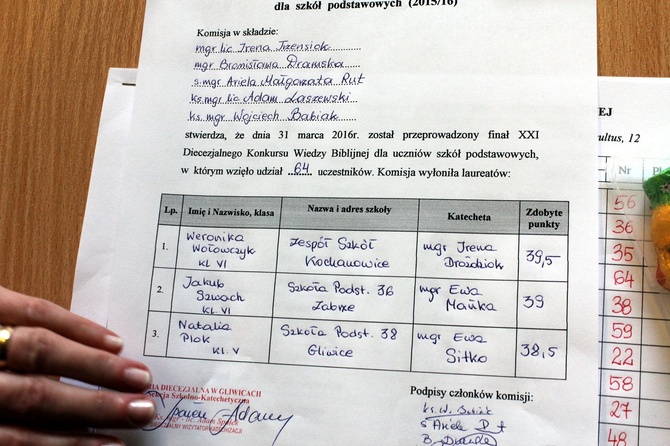 dla szkół podstawowych (2015/16)
Komisja w składzie:
mgr lic Irena Trzensiok
mgr Bronisława Dramska
s. mgr Ariela Małgorzata Rut
ks. mgr lic Adam Łaszewski
ks. mgr Wojciech Babiak
stwierdza, że dnia 31 marca 2016r. został przeprowadzony finał XXI
Diecezjalnego Konkursu Wiedzy Biblijnej dla uczniów szkół podstawowych,
w którym wzięło udział 64 uczestników. Komisja wyłoniła laureatów:
Lp. Imię i Nazwisko, klasa Nazwa i adres szkoły Katecheta Zdobyte punkty
1. Weronika Wołowczyk kl VI Zespół Szkół Kochanowice mgr Irena Droździok 39,5
2. Jakub Szwach kl. VI Szkoła Podst. 36 Zabrze mgr Ewa Mańka 39
3. Natalia Plok kl. V Szkoła Podst. 38 Gliwice mgr Ewa Sitko 38,5
RIA DIECEZJALNA W GLIWICACH
Sekcja Szkolno-Katechetyczna
Ks. mgr lic. Adam Spałek
Podpisy członków komisji:
EJ
ultus, 12
Nr
56
36
35
64
38
59
22
58
27
48